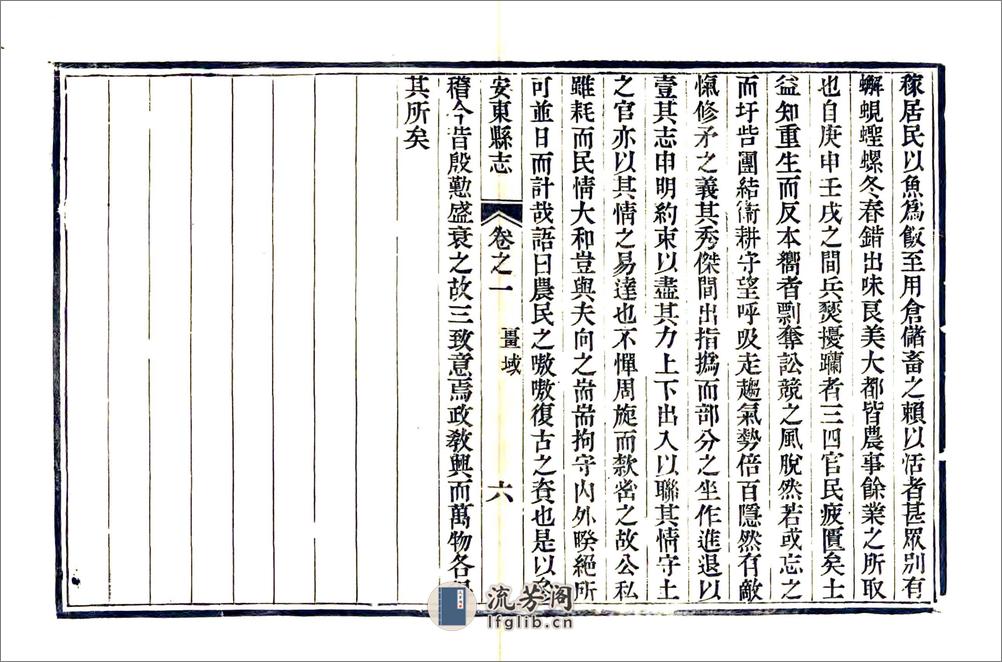 稼居民以魚爲飯至用倉儲畜之賴以活者甚眾別有
蠏蜆蟶螺冬春錯出味良美大都皆農事餘業之所取
也自庚申壬戌之間兵燹擾躪者三四官民疲匱矣土
益知重生而反本嚮者剽奪訟競之風脫然若或忘之
而圩砦團結衞耕守望呼吸走趨氣勢倍百隱然有敵
愾修矛之義其秀傑間出指撝而部分之坐作進退以
壹其志申明約束以盡其力上下出入以聯其情守土
之官亦以其情之易達也不憚周旋而款密之故公私
雖耗而民情大和豈與夫向之耑耑拘守內外睽絕所
可並日而計哉語曰農民之嗷嗷復古之資也是以
安東縣志 卷之一 畺域 六
稽今昔殷懃盛衰之故三致意焉政敎興而萬物各
其所矣
流芳阁
lfglib.cn